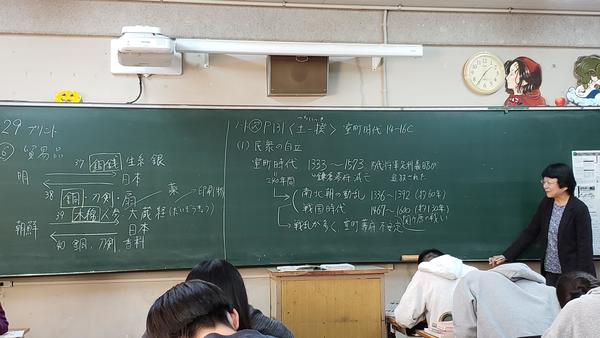 29 プリント
⑥ 貿易品
37 銅銭 生糸 銀
明
日本
38 銅・刀剣・扇
薬
印刷物
39 木棉 人参 大蔵経 (だいぞうきょう)
朝鮮
日本
40 銅、刀剣 香料
P131 〈土一揆〉 室町時代 14-16C
(1) 民衆の自立
室町時代 1333〜1573
鎌倉幕府 滅亡
追放された
240年間
南北朝の動乱 1336〜1392 (約60年)
戦国時代 1467〜1600 (約130年)
関ヶ原の戦い
→戦乱が多く、室町幕府 不安定